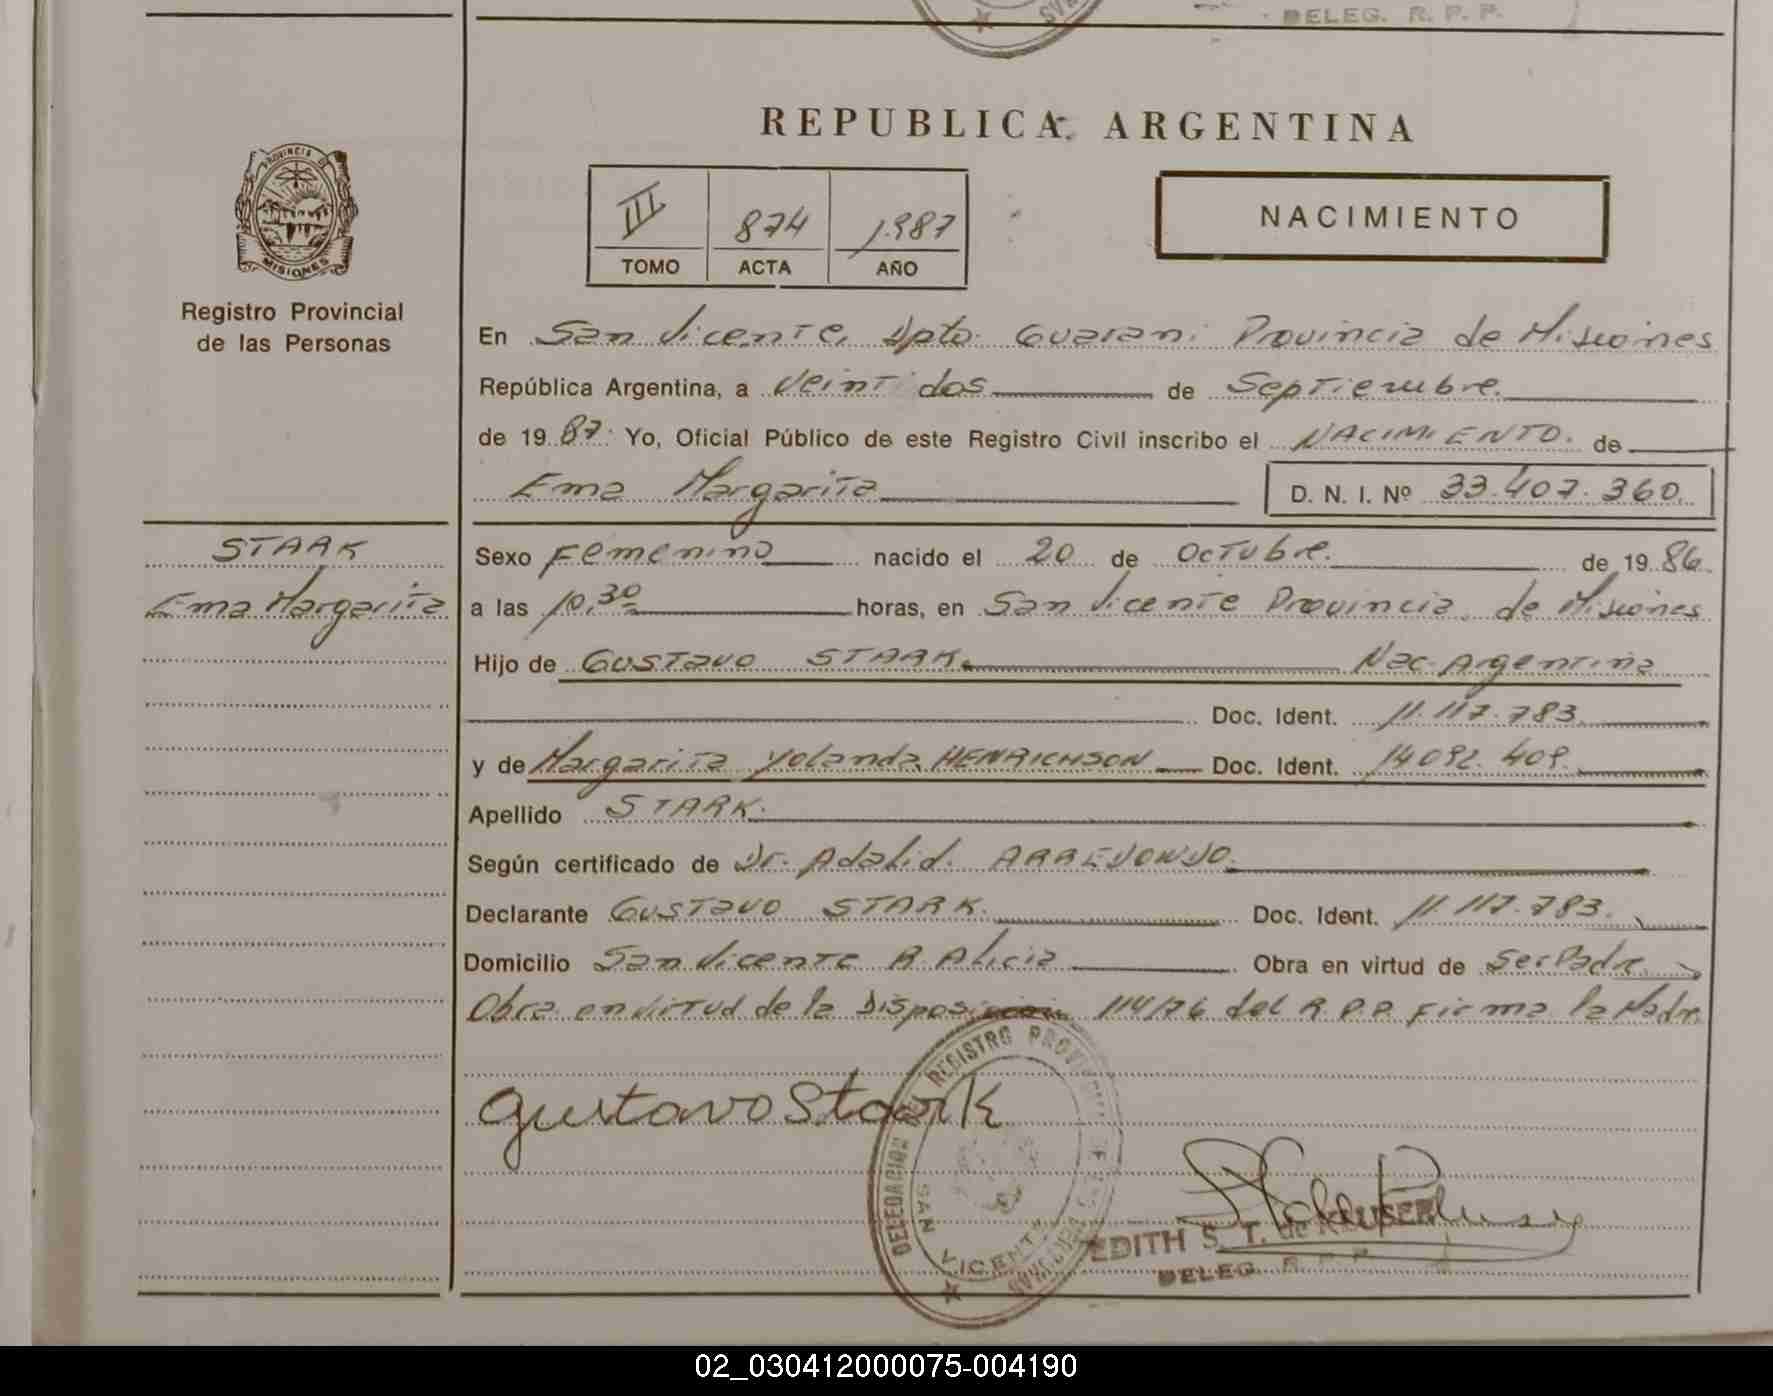 DELEG. R. P. P.
REPUBLICA ARGENTINA
PROVINCIA DE
MISIONES
Registro Provincial
de las Personas
III 874 1987
TOMO ACTA AÑO
NACIMIENTO
En San Vicente, Dpto. Guarani Provincia de Misiones
República Argentina, a veintidos de Septiembre.
de 1987. Yo, Oficial Público de este Registro Civil inscribo el NACIMIENTO. de
Ema Margarita D. N. I. Nº 33.407.360.
STARK
Ema Margarita
Sexo Femenino nacido el 20 de Octubre. de 1986.
a las 10,30 horas, en San Vicente Provincia de Misiones
Hijo de Gustavo STARK. Nac. Argentina
Doc. Ident. 11.117.783.
y de Margarita Yolanda HENRICHSON Doc. Ident. 14.092.409.
Apellido STARK.
Según certificado de Dr. Adalid. ARREDONDO.
Declarante Gustavo STARK. Doc. Ident. 11.117.783.
Domicilio San Vicente B. Alicia Obra en virtud de Ser Padre.
Obra en virtud de la Disposicion 114/76 del R.P.P. Firma la Madre.
Gustavo Stark
DELEGACION DEL REGISTRO PROVINCIAL DE LAS PERSONAS
SAN VICENTE
EDITH S. T. de KEUSER
DELEG. R. P. P.
02_030412000075-004190